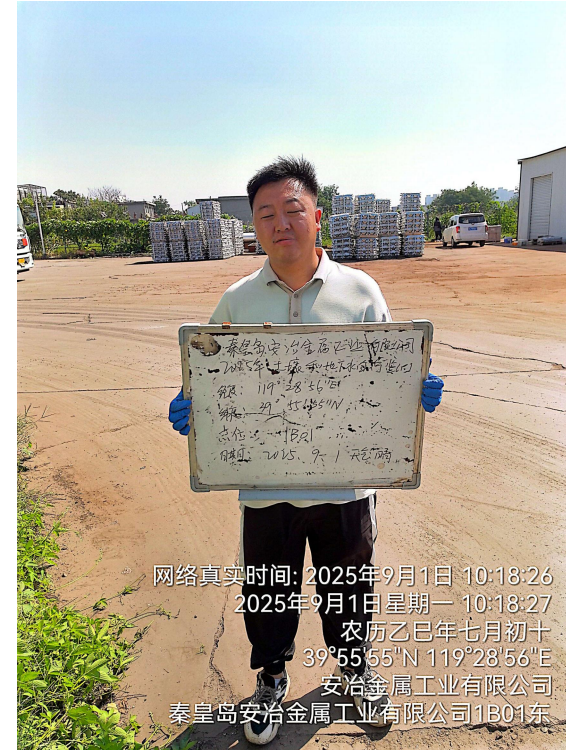 秦皇岛安冶金属工业有限公司
2025年土壤和地下水自行监测
经度: 119°28'56"E
纬度: 39°55'55"N
点位: 1B01
日期: 2025.9.1 天气:晴
网络真实时间: 2025年9月1日 10:18:26
2025年9月1日星期一 10:18:27
农历乙巳年七月初十
39°55'55"N 119°28'56"E
安冶金属工业有限公司
秦皇岛安冶金属工业有限公司1B01东